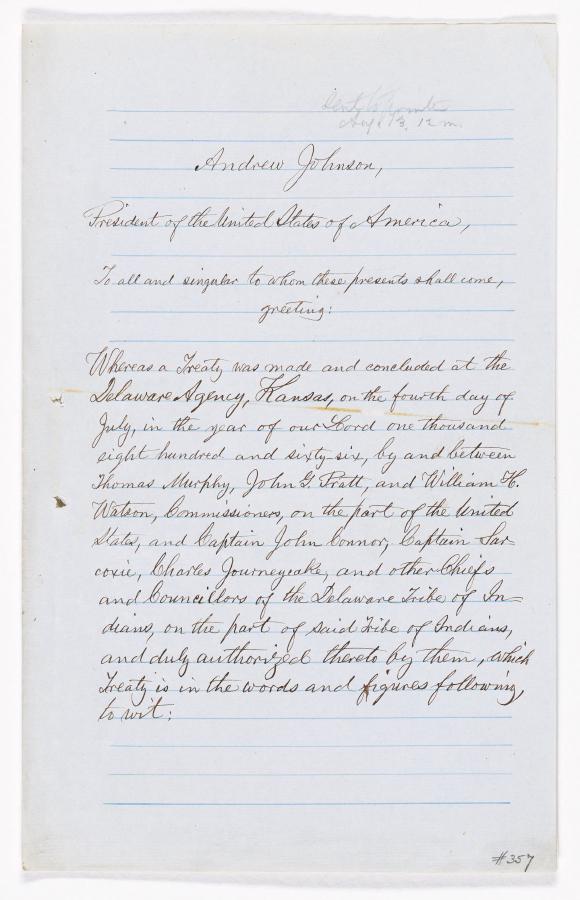 Sent to Printer
Aug 13, 12 m.
Andrew Johnson,
President of the United States of America,
To all and singular to whom these presents shall come,
greeting:
Whereas a Treaty was made and concluded at the
Delaware Agency, Kansas, on the fourth day of
July, in the year of our Lord one thousand
eight hundred and sixty-six, by and between
Thomas Murphy, John G. Pratt, and William H.
Watson, Commissioners, on the part of the United
States, and Captain John Connor, Captain Sar-
coxie, Charles Journeycake, and other Chiefs
and Councillors of the Delaware Tribe of In=
dians, on the part of said Tribe of Indians,
and duly authorized thereto by them, which
Treaty is in the words and figures following,
to wit:
#357